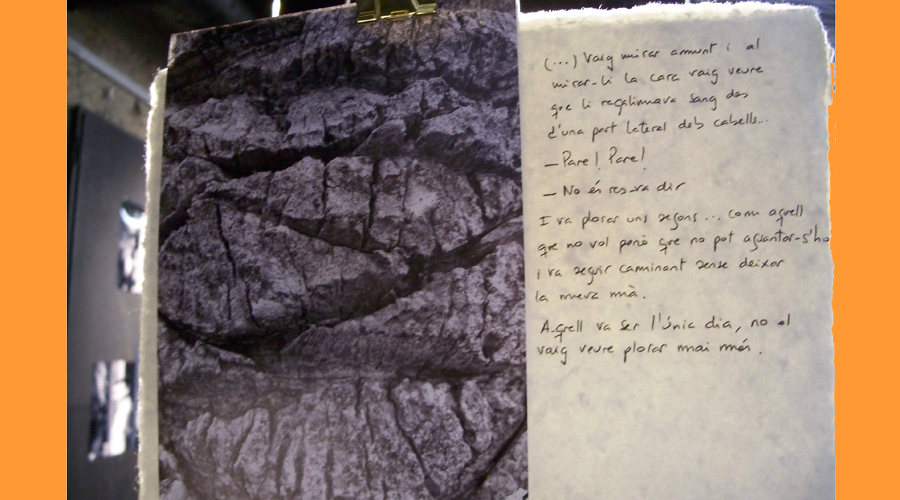 (...) Vaig mirar amunt i al
mirar-li la cara vaig veure
que li regalimava sang des
d'una part lateral dels cabells...
— Pare! Pare!
— No és res-va dir
I va plorar uns segons... com aquell
que no vol però que no pot aguantar-s'ho
i va seguir caminant sense deixar
la meva mà.
Aquell va ser l'únic dia, no el
vaig veure plorar mai més.